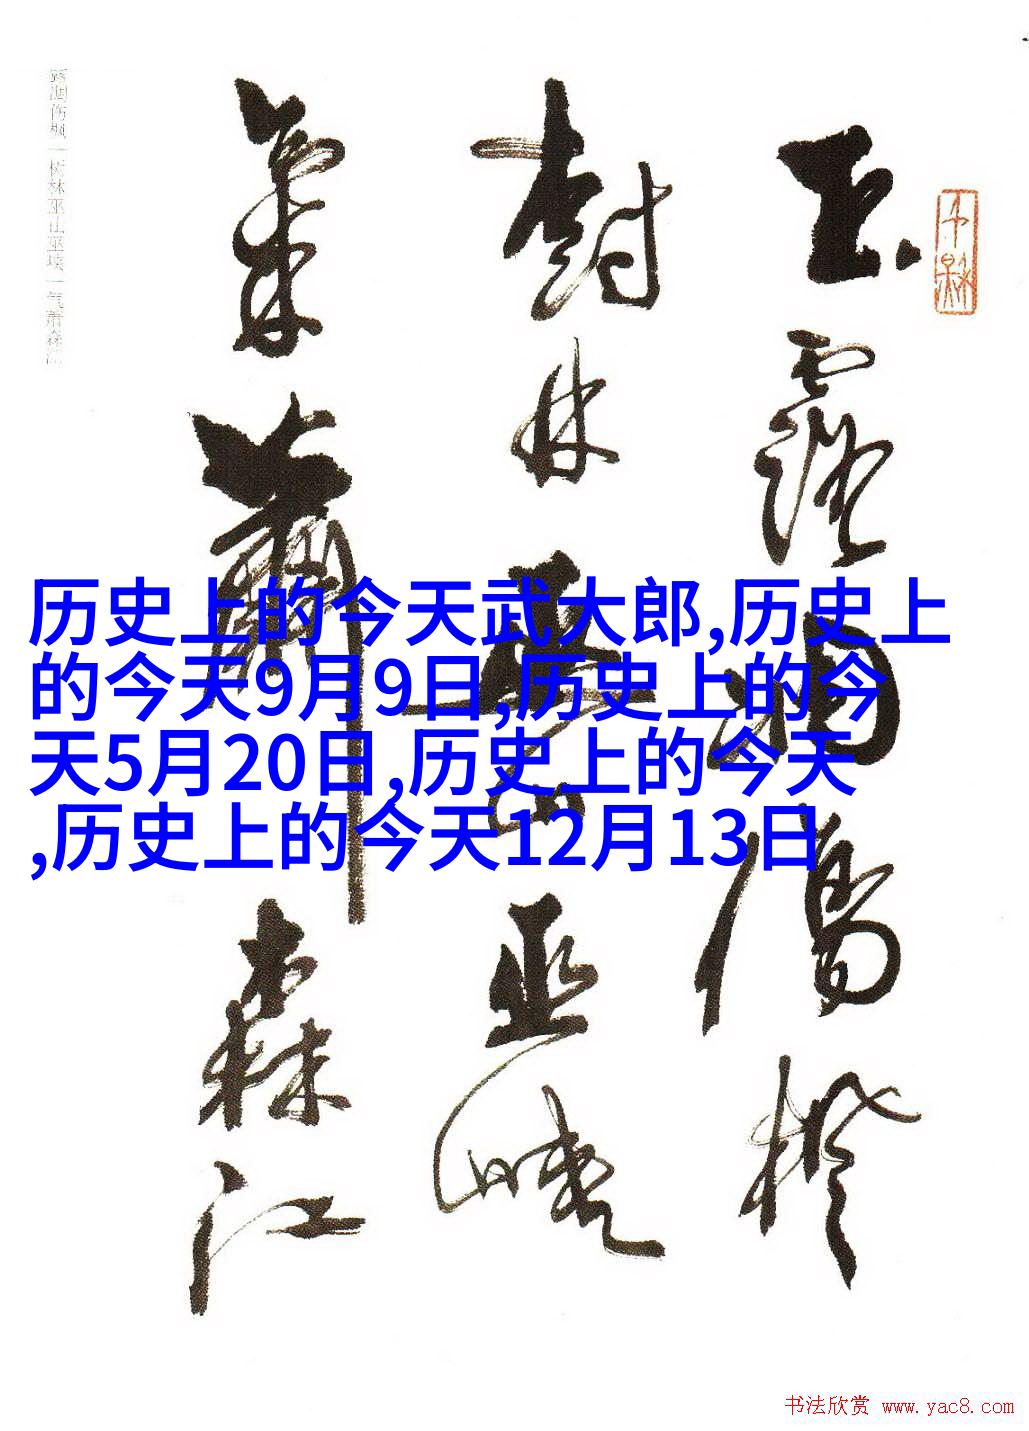 历史上的今天武大郎,历史上
的今天9月9日,历史上的今
天5月20日,历史上的今天
,历史上的今天12月13日
玉露凋傷楓
樹林巫山巫峽
氣蕭森江
露凋伤枫｜树林巫山巫峡｜气萧森江
书法欣赏 www.yac8.com